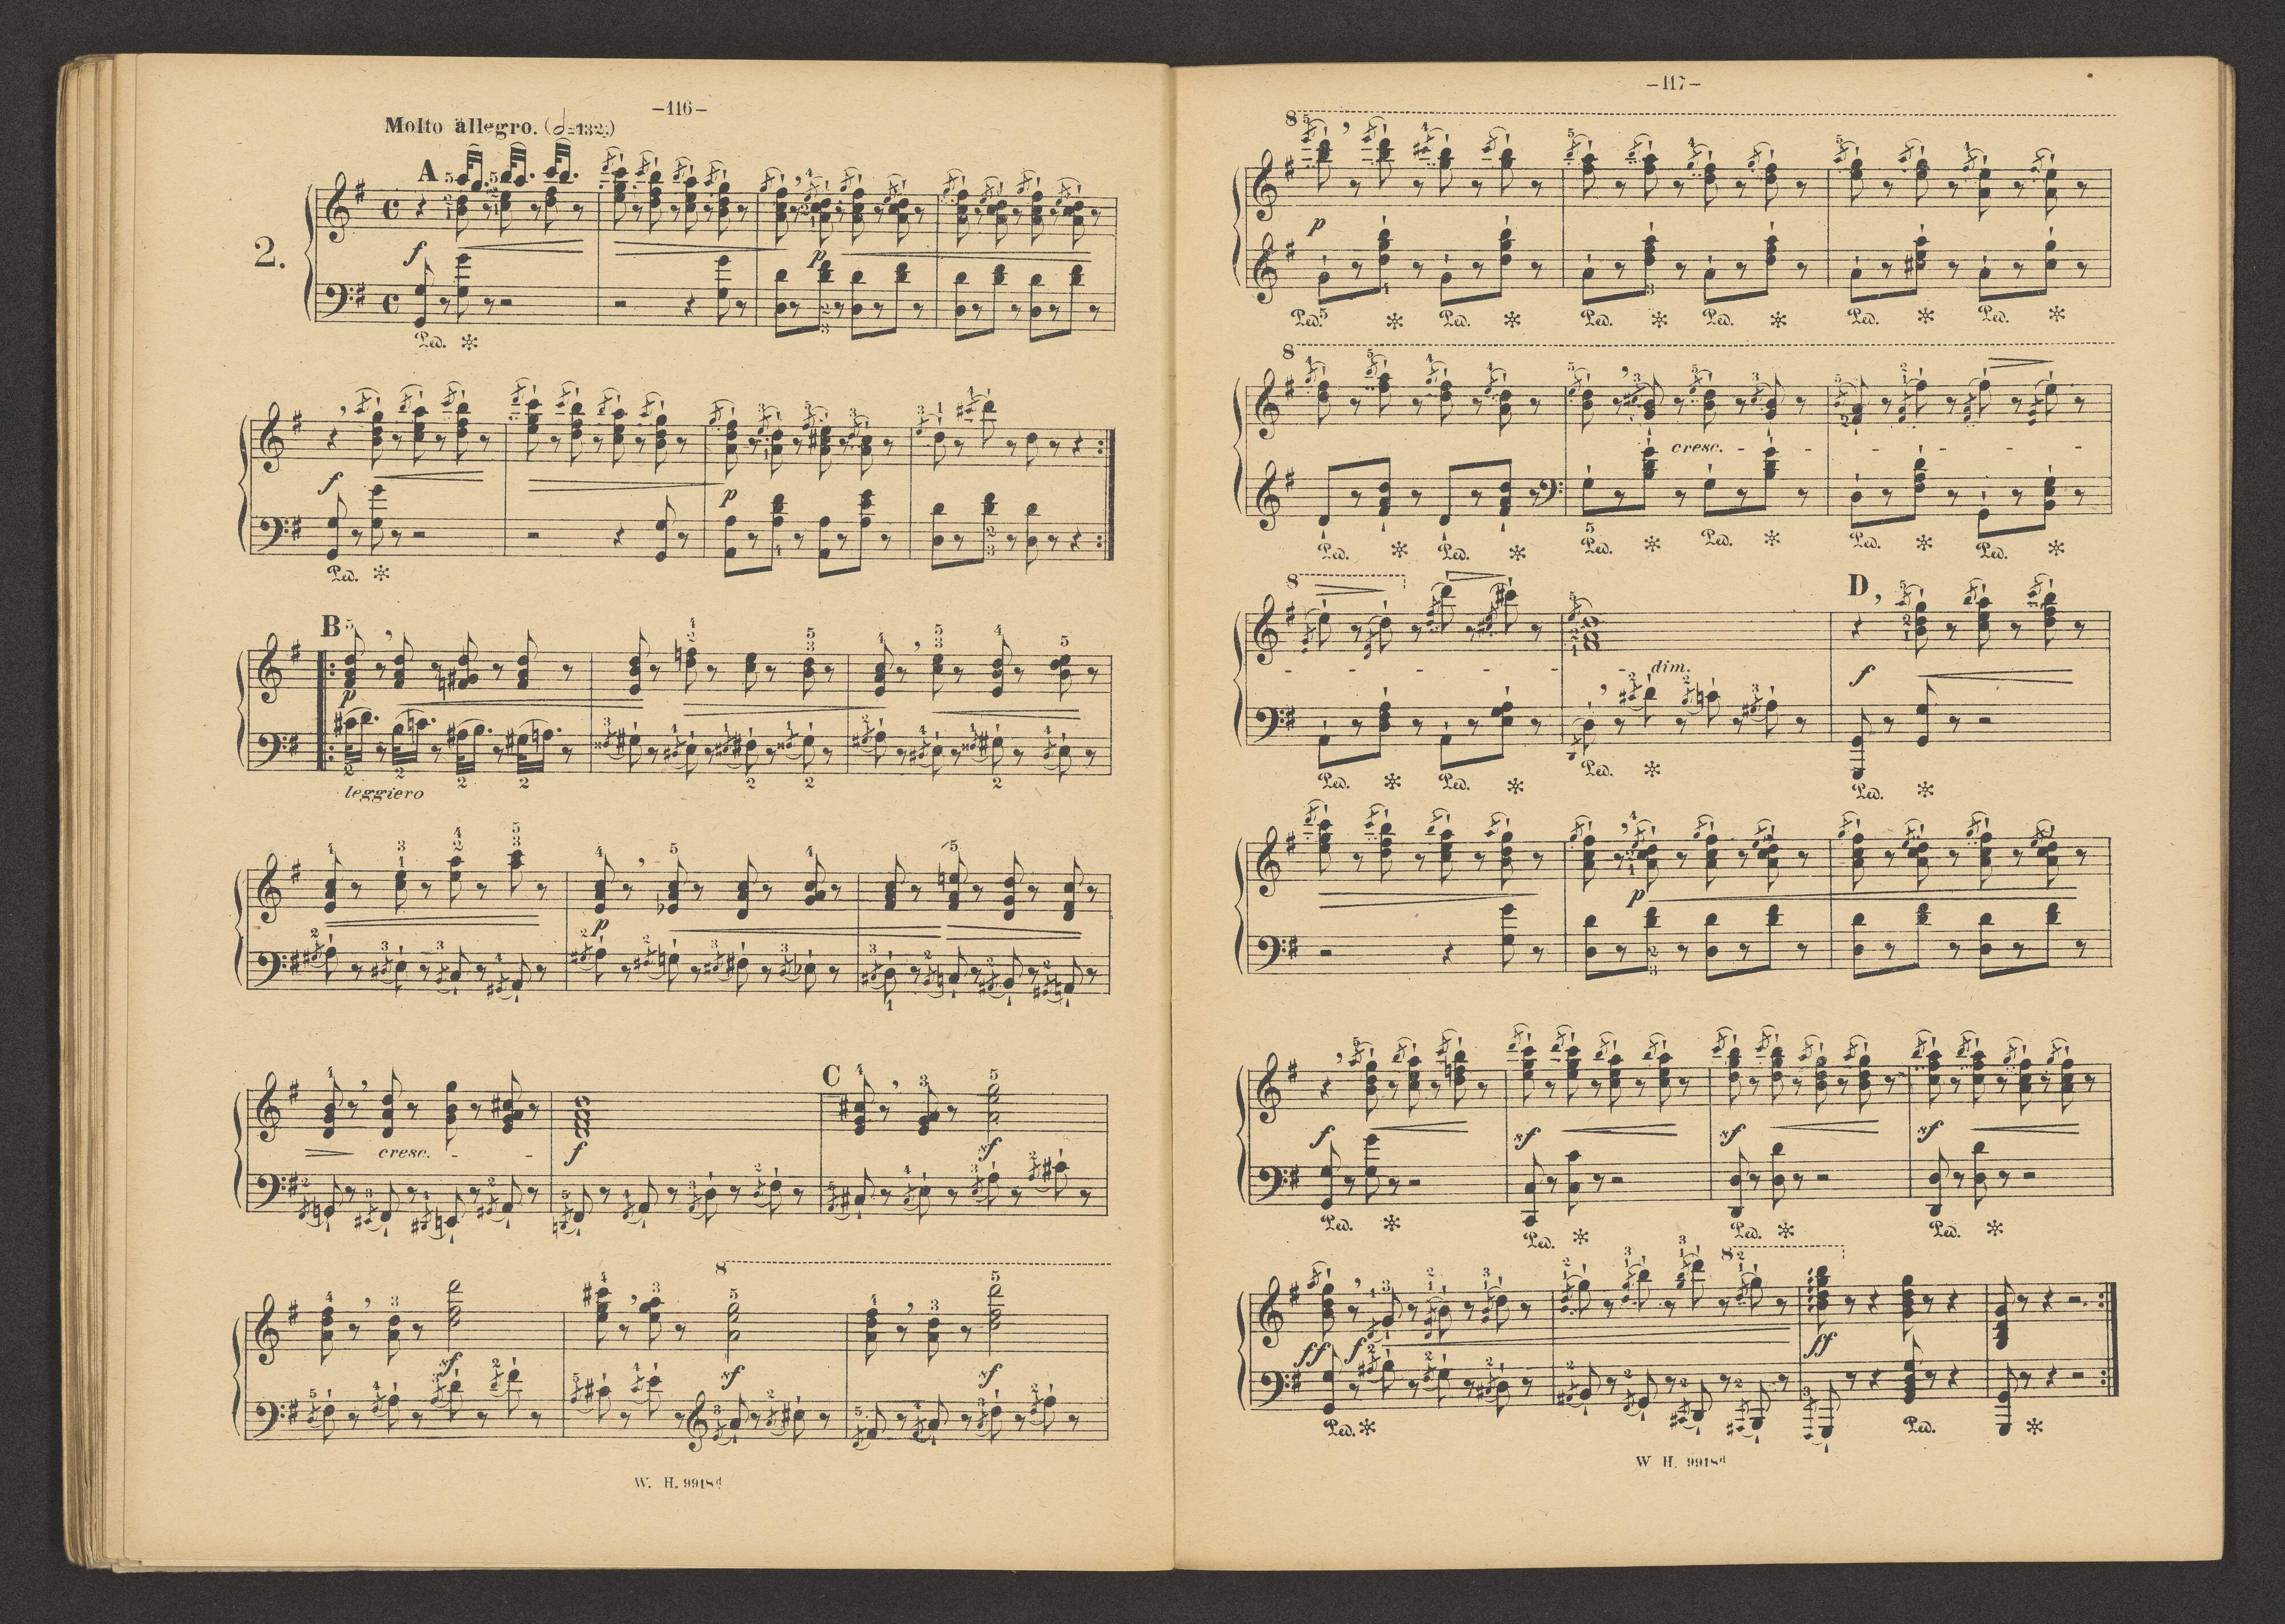 –116–
Molto allegro. (𝅗𝅥=132.)
A
2.
f
p
Ped. *
f
p
Ped. *
B
p
leggiero
p
C
cresc.
f
sf
8
sf
sf
sf
W. H. 9918d
–117–
8
p
Ped. * Ped. * Ped. * Ped. * Ped. * Ped. *
8
cresc.
Ped. * Ped. * Ped. * Ped. * Ped. * Ped. *
8
D
dim.
f
Ped. * Ped. * Ped. * Ped. *
p
f
sf
sf
sf
Ped. * Ped. * Ped. * Ped. *
8
ff
f
ff
Ped. * Ped. *
W. H. 9918d